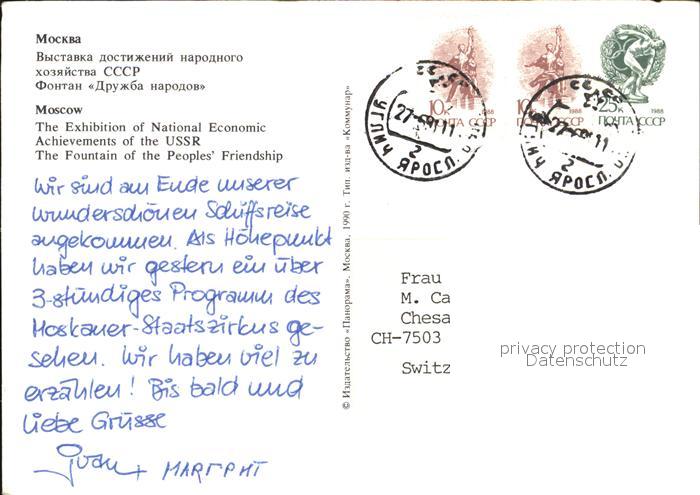 Москва
Выставка достижений народного
хозяйства СССР
Фонтан «Дружба народов»
Moscow
The Exhibition of National Economic
Achievements of the USSR
The Fountain of the Peoples' Friendship
Wir sind am Ende unserer
wunderschönen Schiffsreise
angekommen. Als Höhepunkt
haben wir gestern ein über
3-stündiges Programm des
Moskauer-Staatszirkus ge-
sehen. Wir haben viel zu
erzählen! Bis bald und
liebe Grüsse
Ivan + МАРГРИТ
© Издательство «Панорама». Москва, 1990 г. Тип. изд-ва «Коммунар»
10к 1988
ПОЧТА СССР
10к 1988
ПОЧТА СССР
25к 1988
ПОЧТА СССР
УГЛИЧ ЯРОСЛ.
2
УГЛИЧ ЯРОСЛ.
2
Frau
M. Ca
Chesa
CH-7503
Switz
privacy protection
Datenschutz